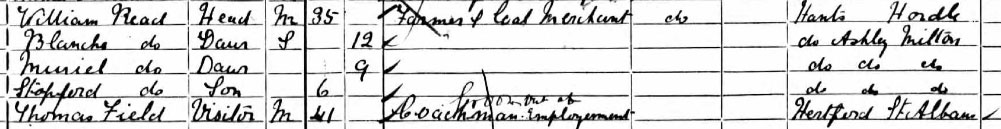 William Read Head M 35 Farmer & Coal Merchant do Hants Hordle
Blanche do Daur S 12 do Ashley Milton
Muriel do Daur 9 do do do
Stopford do Son 6 do do do
Thomas Field Visitor M 41 Coachman Groom out of Employerment Hertford St Albans